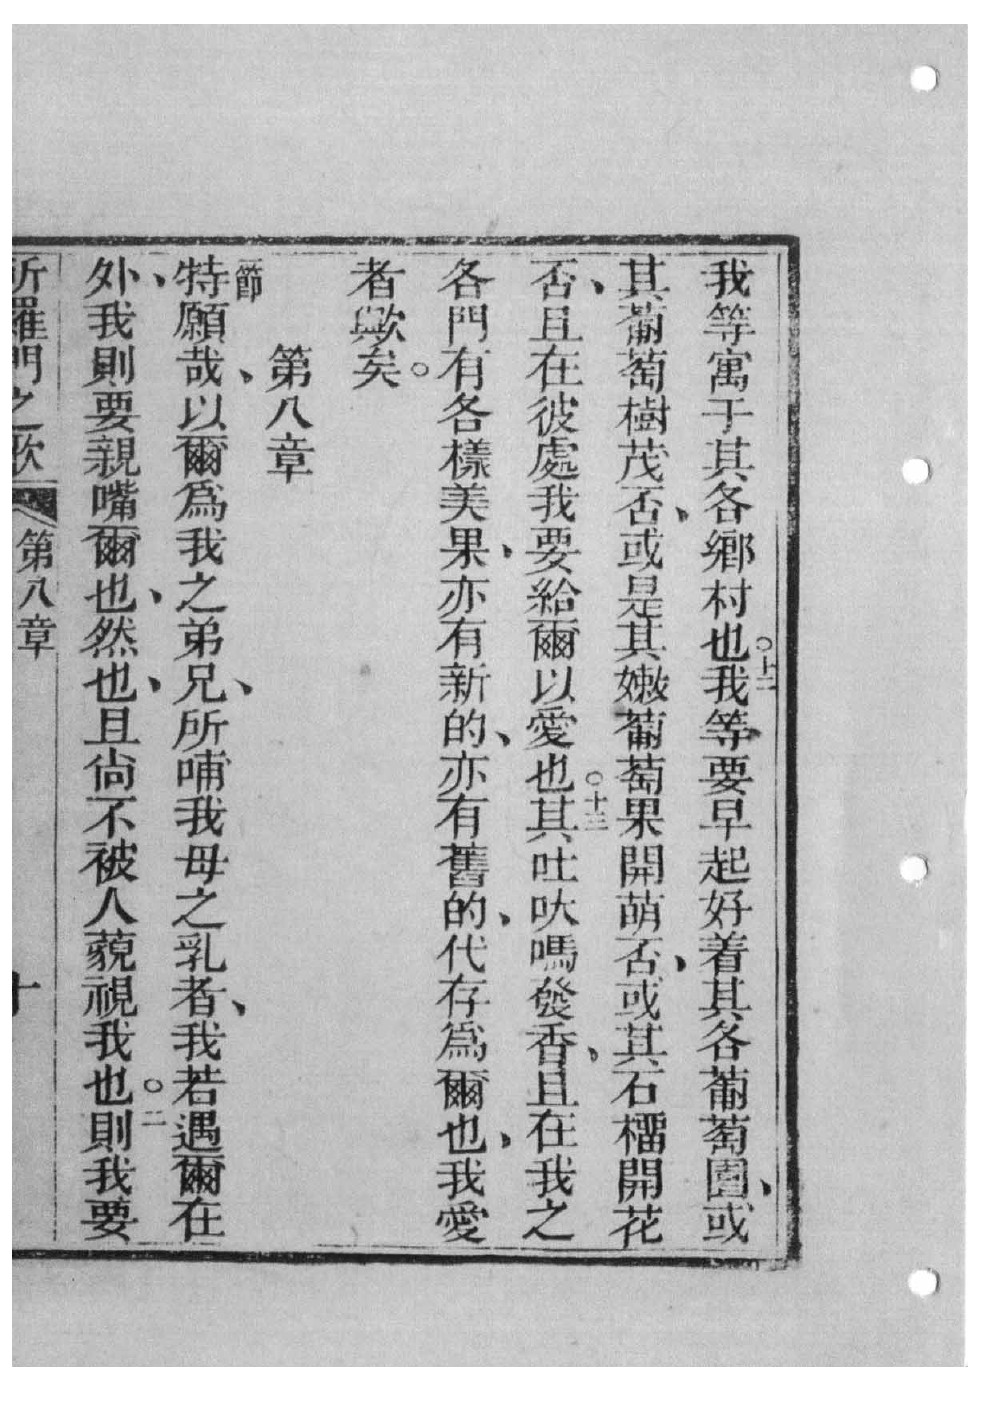 我等寓于其各鄉村也。十二我等要早起好着其各葡萄園、或
其葡萄樹茂否、或是其嫩葡萄果開萌否、或其石橊開花
否、且在彼處我要給爾以愛也。十三其吐吠嗎發香、且在我之
各門有各樣美果、亦有新的、亦有舊的、代存爲爾也、我愛
者歟矣。
第八章
一節特願哉、以爾爲我之弟兄、所哺我母之乳者、我若遇爾在
外、我則要親嘴爾也、然也、且尙不被人藐視我也。二則我要
所羅門之歌 第八章 十